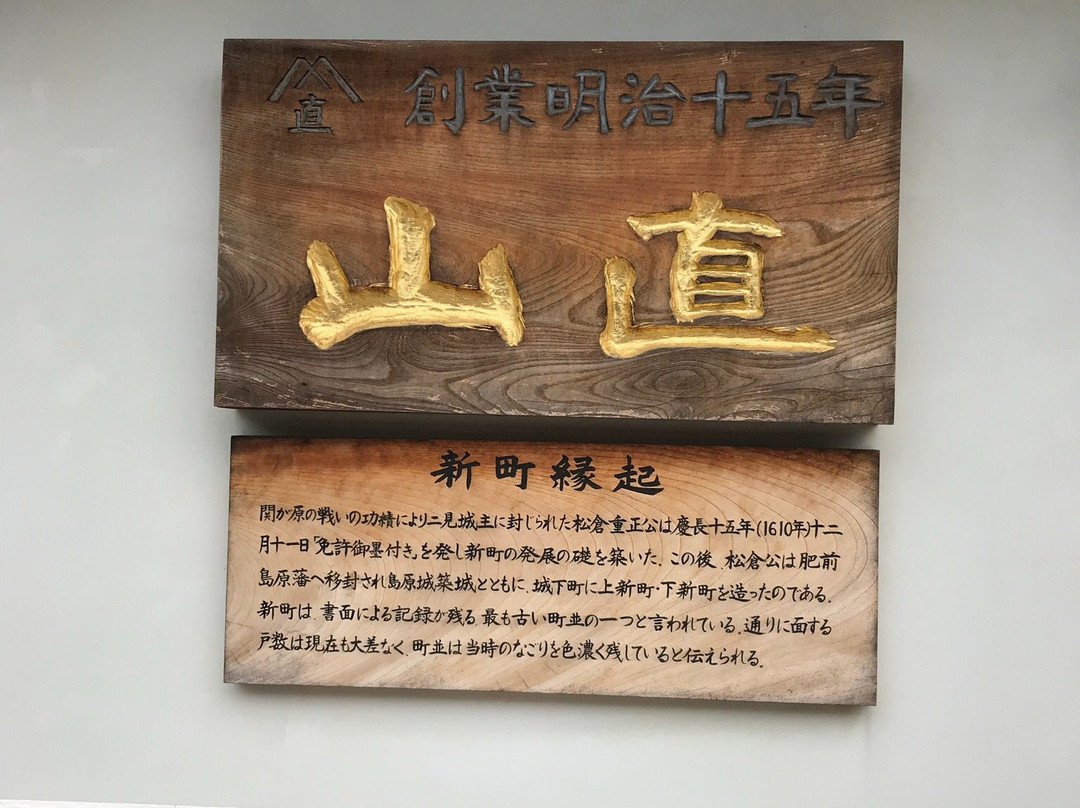 直
創業明治十五年
山直
新町縁起
関が原の戦いの功績により二見城主に封じられた松倉重正公は慶長十五年(1610年)十二
月十一日「免許御墨付き」を発し新町の発展の礎を築いた。この後、松倉公は肥前
島原藩へ移封され島原城築城とともに、城下町に上新町・下新町を造ったのである。
新町は、書面による記録が残る、最も古い町並の一つと言われている。通りに面する
戸数は現在も大差なく、町並は当時のなごりを色濃く残していると伝えられる。